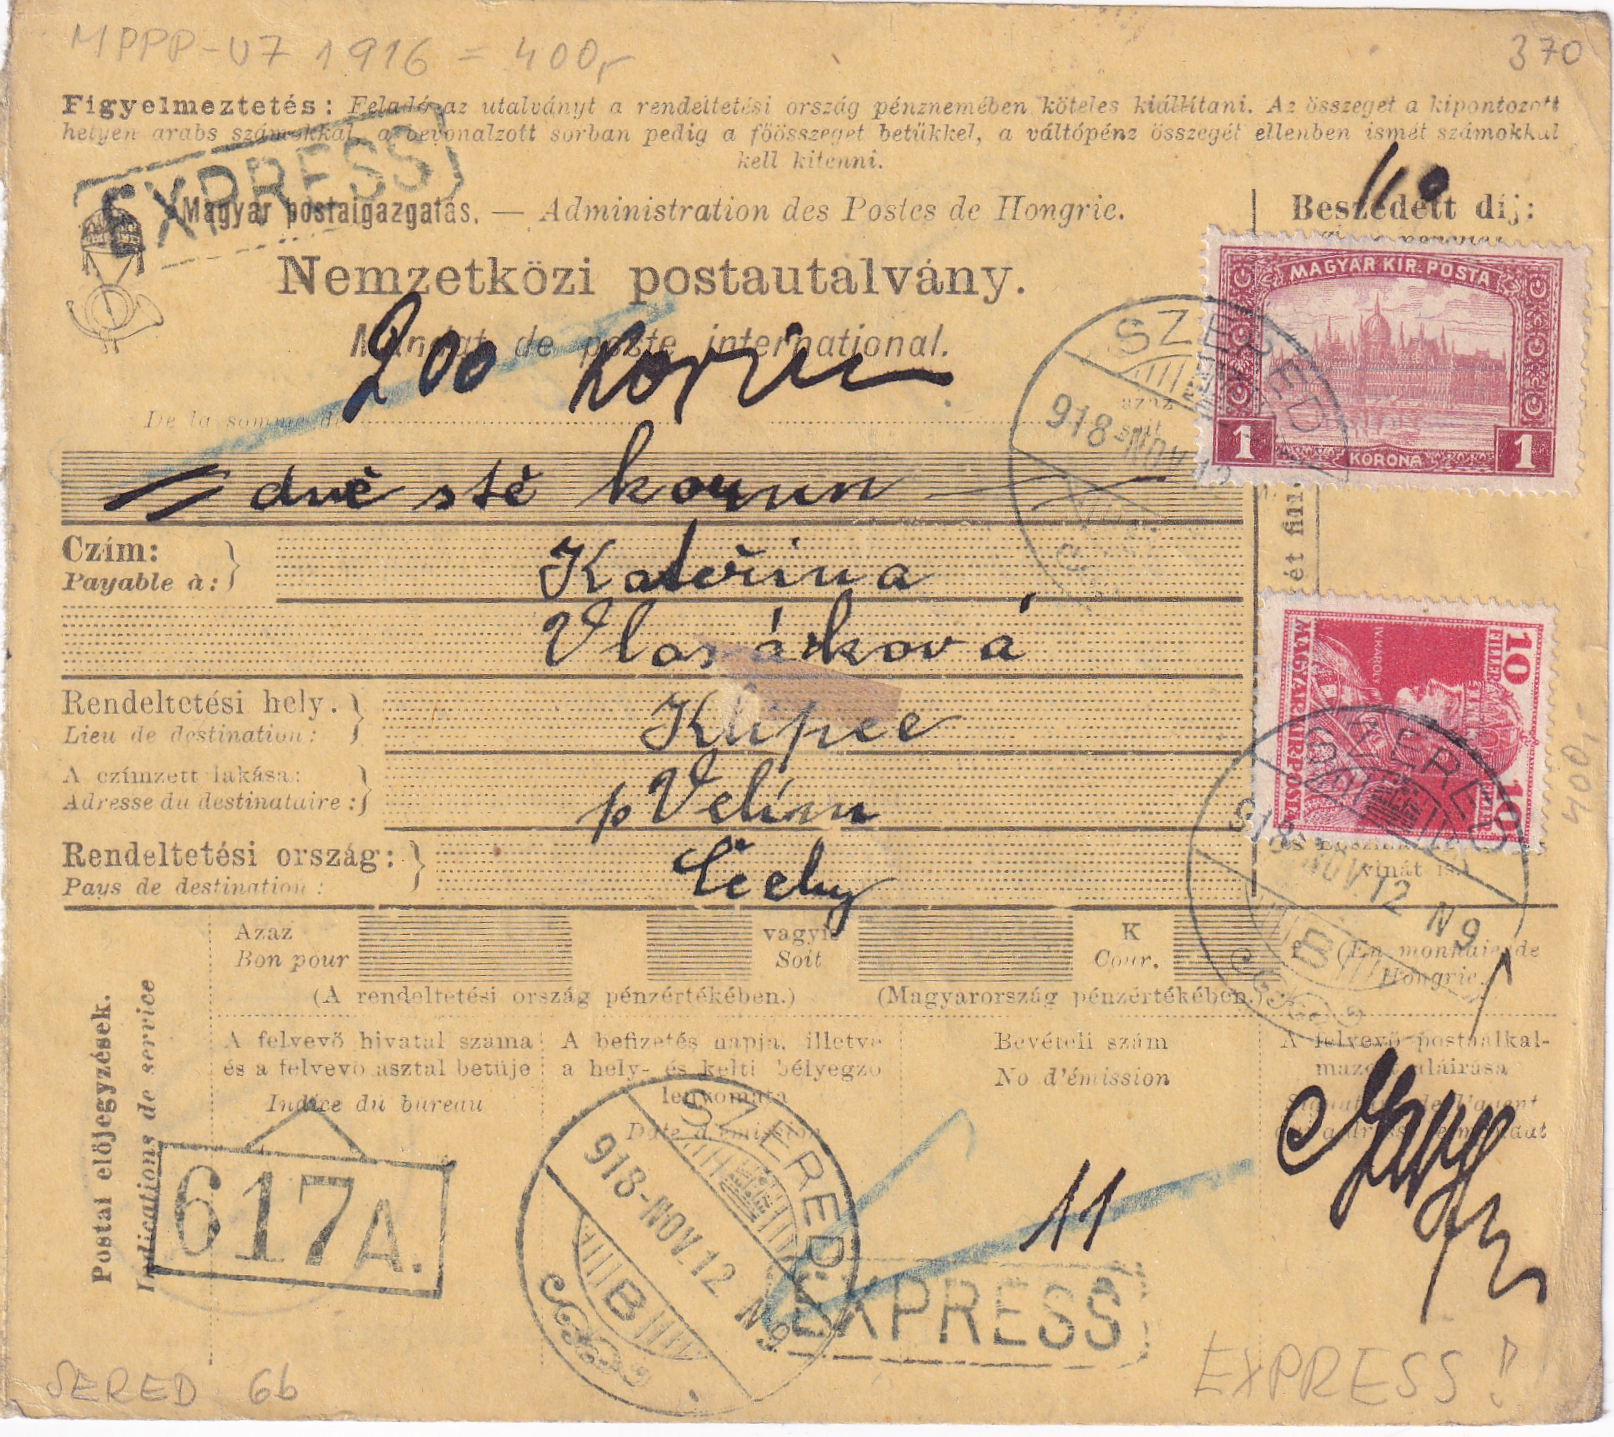 MPPP-U7 1916 = 400,-
370
Figyelmeztetés: Feladó az utalványt a rendeltetési ország pénznemében köteles kiállítani. Az összeget a kipontozott
helyen arabs számokkal, a bevonalzott sorban pedig a főösszeget betűkkel, a váltópénz összegét ellenben ismét számokkal
kell kitenni.
EXPRESS
Magyar postaigazgatás. — Administration des Postes de Hongrie.
Beszedett díj:
Nemzetközi postautalvány.
Mandat de poste international.
200 korun
De la somme de
MAGYAR KIR. POSTA
1 KORONA 1
SZERED
918-NOV. 12
azaz
dvě stě korun
ét fill.
Czím:
Payable à:
Kateřina
Vlasáková
10 FILLER 10
MAGYAR KIR. POSTA
IV. KÁROLY
Rendeltetési hely.
Lieu de destination:
Klipec
A czímzett lakása:
Adresse du destinataire:
p Velim
Rendeltetési ország:
Pays de destination:
Čechy
SZERED
918-NOV. 12 N9
B
400,-
vinát is.)
Azaz
Bon pour
vagyis
Soit
K
Cour.
f (En monnaie de
Hongrie.)
(A rendeltetési ország pénzértékében.)
(Magyarország pénzértékében.)
Postai előjegyzések.
Indications de service
A felvevő hivatal száma
és a felvevő asztal betüje
Indice du bureau
A befizetés napja, illetve
a hely- és kelti bélyegző
lenyomata
Date d'émission
Bevételi szám
No d'émission
A felvevő postaalkal-
mazott aláírása
617A.
SZERED
918-NOV. 12 N9
B
11
EXPRESS
SERED 6b
EXPRESS!